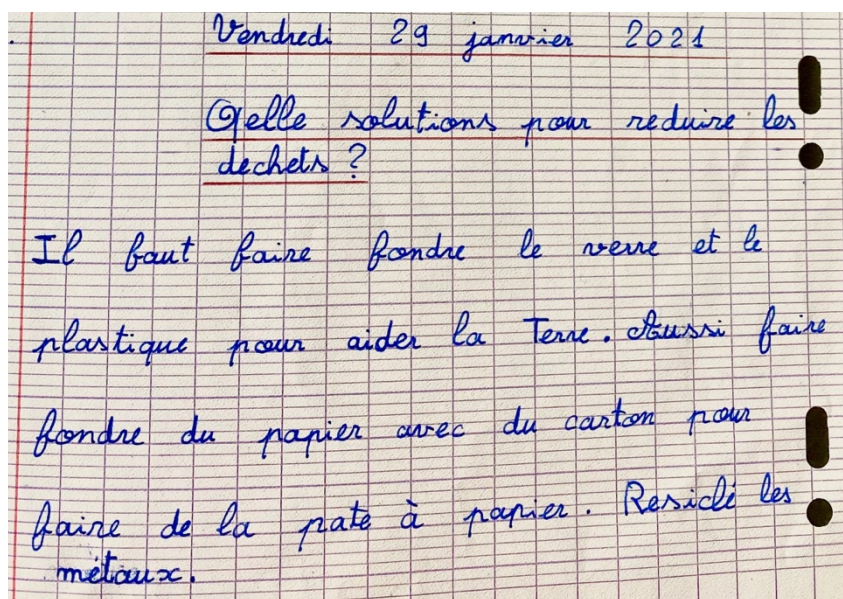 Vendredi 29 janvier 2021
Qelle solutions pour reduire les
dechets ?
Il faut faire fondre le verre et le
plastique pour aider la Terre. Aussi faire
fondre du papier avec du carton pour
faire de la pate à papier. Resiclé les
métaux.